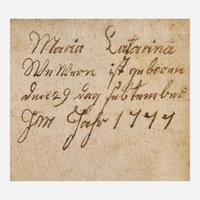 Maria Catarina
WeWern ist geboren
den 29 dag Subtember
Im Jahr 1777